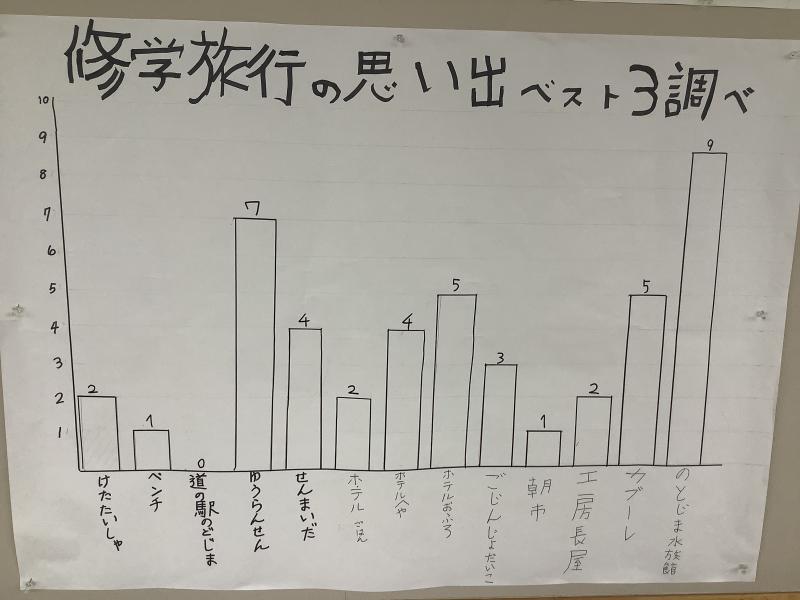 修学旅行の思い出ベスト3調べ
10
9
8
7
6
5
4
3
2
1
2
1
0
7
4
2
4
5
3
1
2
5
9
けたたいしゃ
ベンチ
道の駅のとじま
ゆうらんせん
せんまいだ
ホテルごはん
ホテルへや
ホテルおふろ
ごじんじょだいこ
朝市
工房長屋
カブーレ
のとじま水族館